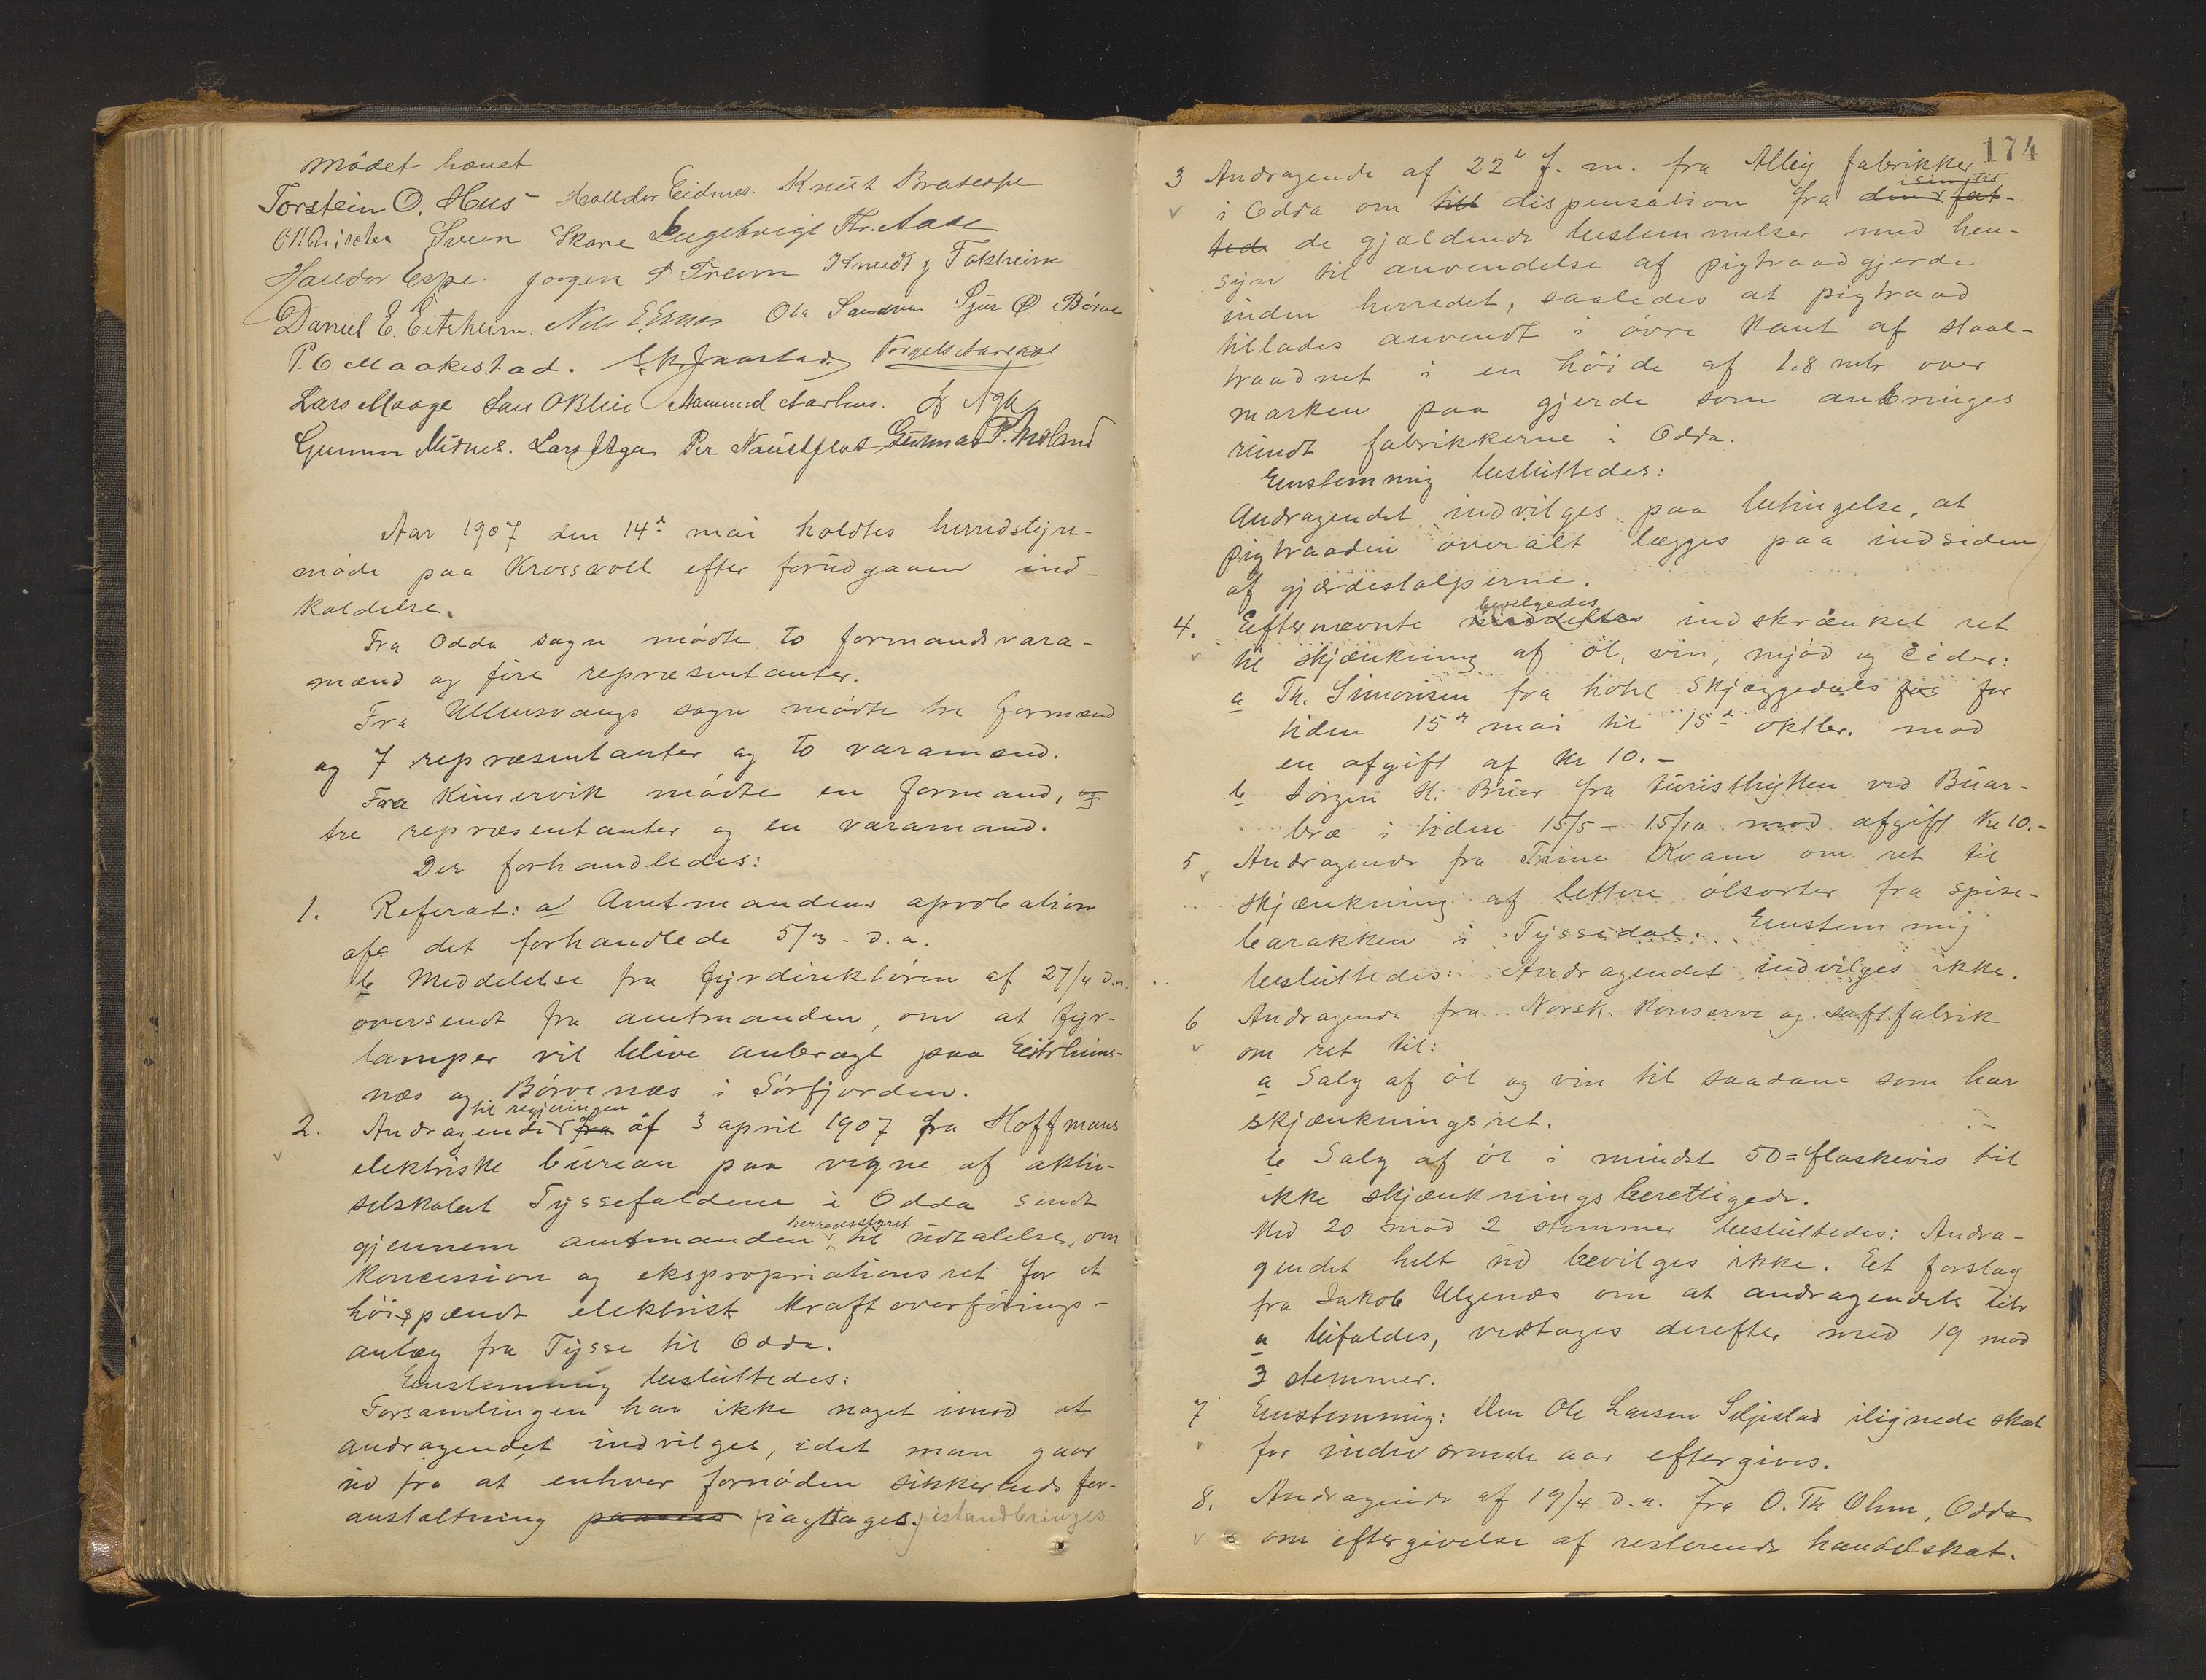 Mødet hævet
Torstein O. Hus Halldor Eidnes. Knut Bratespe
Svein Skare Engebrigt Kr. Aase
Halldor Espe. Jørgen Freim Knudt J Tokheim
Daniel E. Eitrheim. Nils E. Ola Sandven Sjur Børve
P. O. Maakestad. Jaastad
Lars Maage Lars O Blie Aammund Aarhus. Aga
Gunnar Midnes. Lars Aga Per Naustflot Gunnar P. Moland
Aar 1907 den 14de mai holdtes herredstyre-
møde paa Krossvoll efter forudgaaen ind-
kaldelse.
Fra Odda sogn mødte to formandsvara-
mænd og fire repræsentanter.
Fra Ullensvangs sogn mødte tre formænd
og 7 repræsentanter og to varamænd.
Fra Kinservik mødte en formand, og
tre repræsentanter og en varamand.
Der forhandledes:
1. Referat: a Amtmandens aprobation
af det forhandlede 5/3 d.a.
b Meddelelse fra fyrdirektøren af 27/4 d.a.
oversendt fra amtmanden, om at fyr-
lamper vil blive anbragt paa Eitrheims-
næs og Børvenæs i Sørfjorden.
til regjeringen
2. Andragende fra af 3 april 1907 fra Hoffmans
elektriske bureau paa vegne af aktie-
selskabet Tyssefaldene i Odda sendt
herredsstyret
gjennem amtmanden til udtalelse, om
koncession og ekspropriationsret for et
høispændt elektrisk kraftoverførings-
anlæg fra Tysse til Odda.
Enstemmig besluttedes:
Forsamlingen har ikke noget imod at
andragendet indvilges, idet man gaar
ud fra at enhver fornøden sikkerheds for-
anstaltning (iagttages.) istandbringes
174
3 Andragende af 22de f. m. fra Alby fabrikker
i sin tid
i Odda om till dispensation fra den fat-
tede de gjældende bestemmelser med hen-
syn til anvendelse af pigtraadgjerde
inden herredet, saaledes at pigtraad
tillades anvendt i øvre kant af staal-
traadnet i en høide af 1.8 mtr over
marken paa gjerde som anbringes
rundt fabrikkerne i Odda.
Enstemmig besluttedes:
Andragendet indvilges paa betingelse, at
pigtraaden overalt lægges paa indsiden
af gjærdestolperne.
bevilgedes
4. Eftermævnte meddeltes indskrænket ret
til skjænkning af øl, vin, mjød og cider:
a Th. Simonsen fra hotel Skjæggedals for for
tiden 15de mai til 15de oktbr. mod
en afgift af kr 10.-
b Jørgen H. Buer fra turisthytten ved Buar-
bræ i tiden 15/5 - 15/10 mod afgift kr 10.-
5 Andragende fra Trine Kvam om ret til
skjænkning af lettere ølsorter fra spise-
barakken i Tyssedal. Enstemmig
besluttedes: Andragendet indvilges ikke.
6 Andragende fra Norsk konserve og saftfabrik
om ret til:
a Salg af øl og vin til saadane som har
skjænkningsret.
b Salg af øl i mindst 50=flaskevis til
ikke skjænkningsberettigede.
Med 20 mod 2 stemmer besluttedes: Andra-
gendet helt ud bevilges ikke. Et forslag
fra Jakob Ulgenæs om at andragendets litr
a bifaldes, vedtages derefter med 19 mod
3 stemmer.
7 Enstemmig: Den Ole Larsen Seljestad ilignede skat
for indeværende aar eftergives.
8. Andragende af 19/4 d.a. fra O. Th Ohm, Odda
om eftergivelse af resterende handelskat.